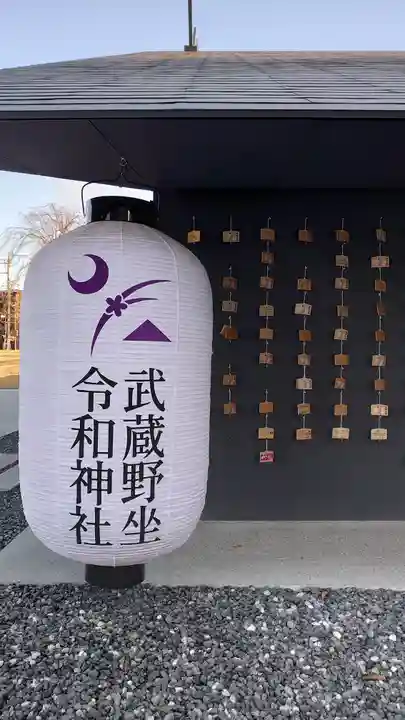 武蔵野坐
令和神社